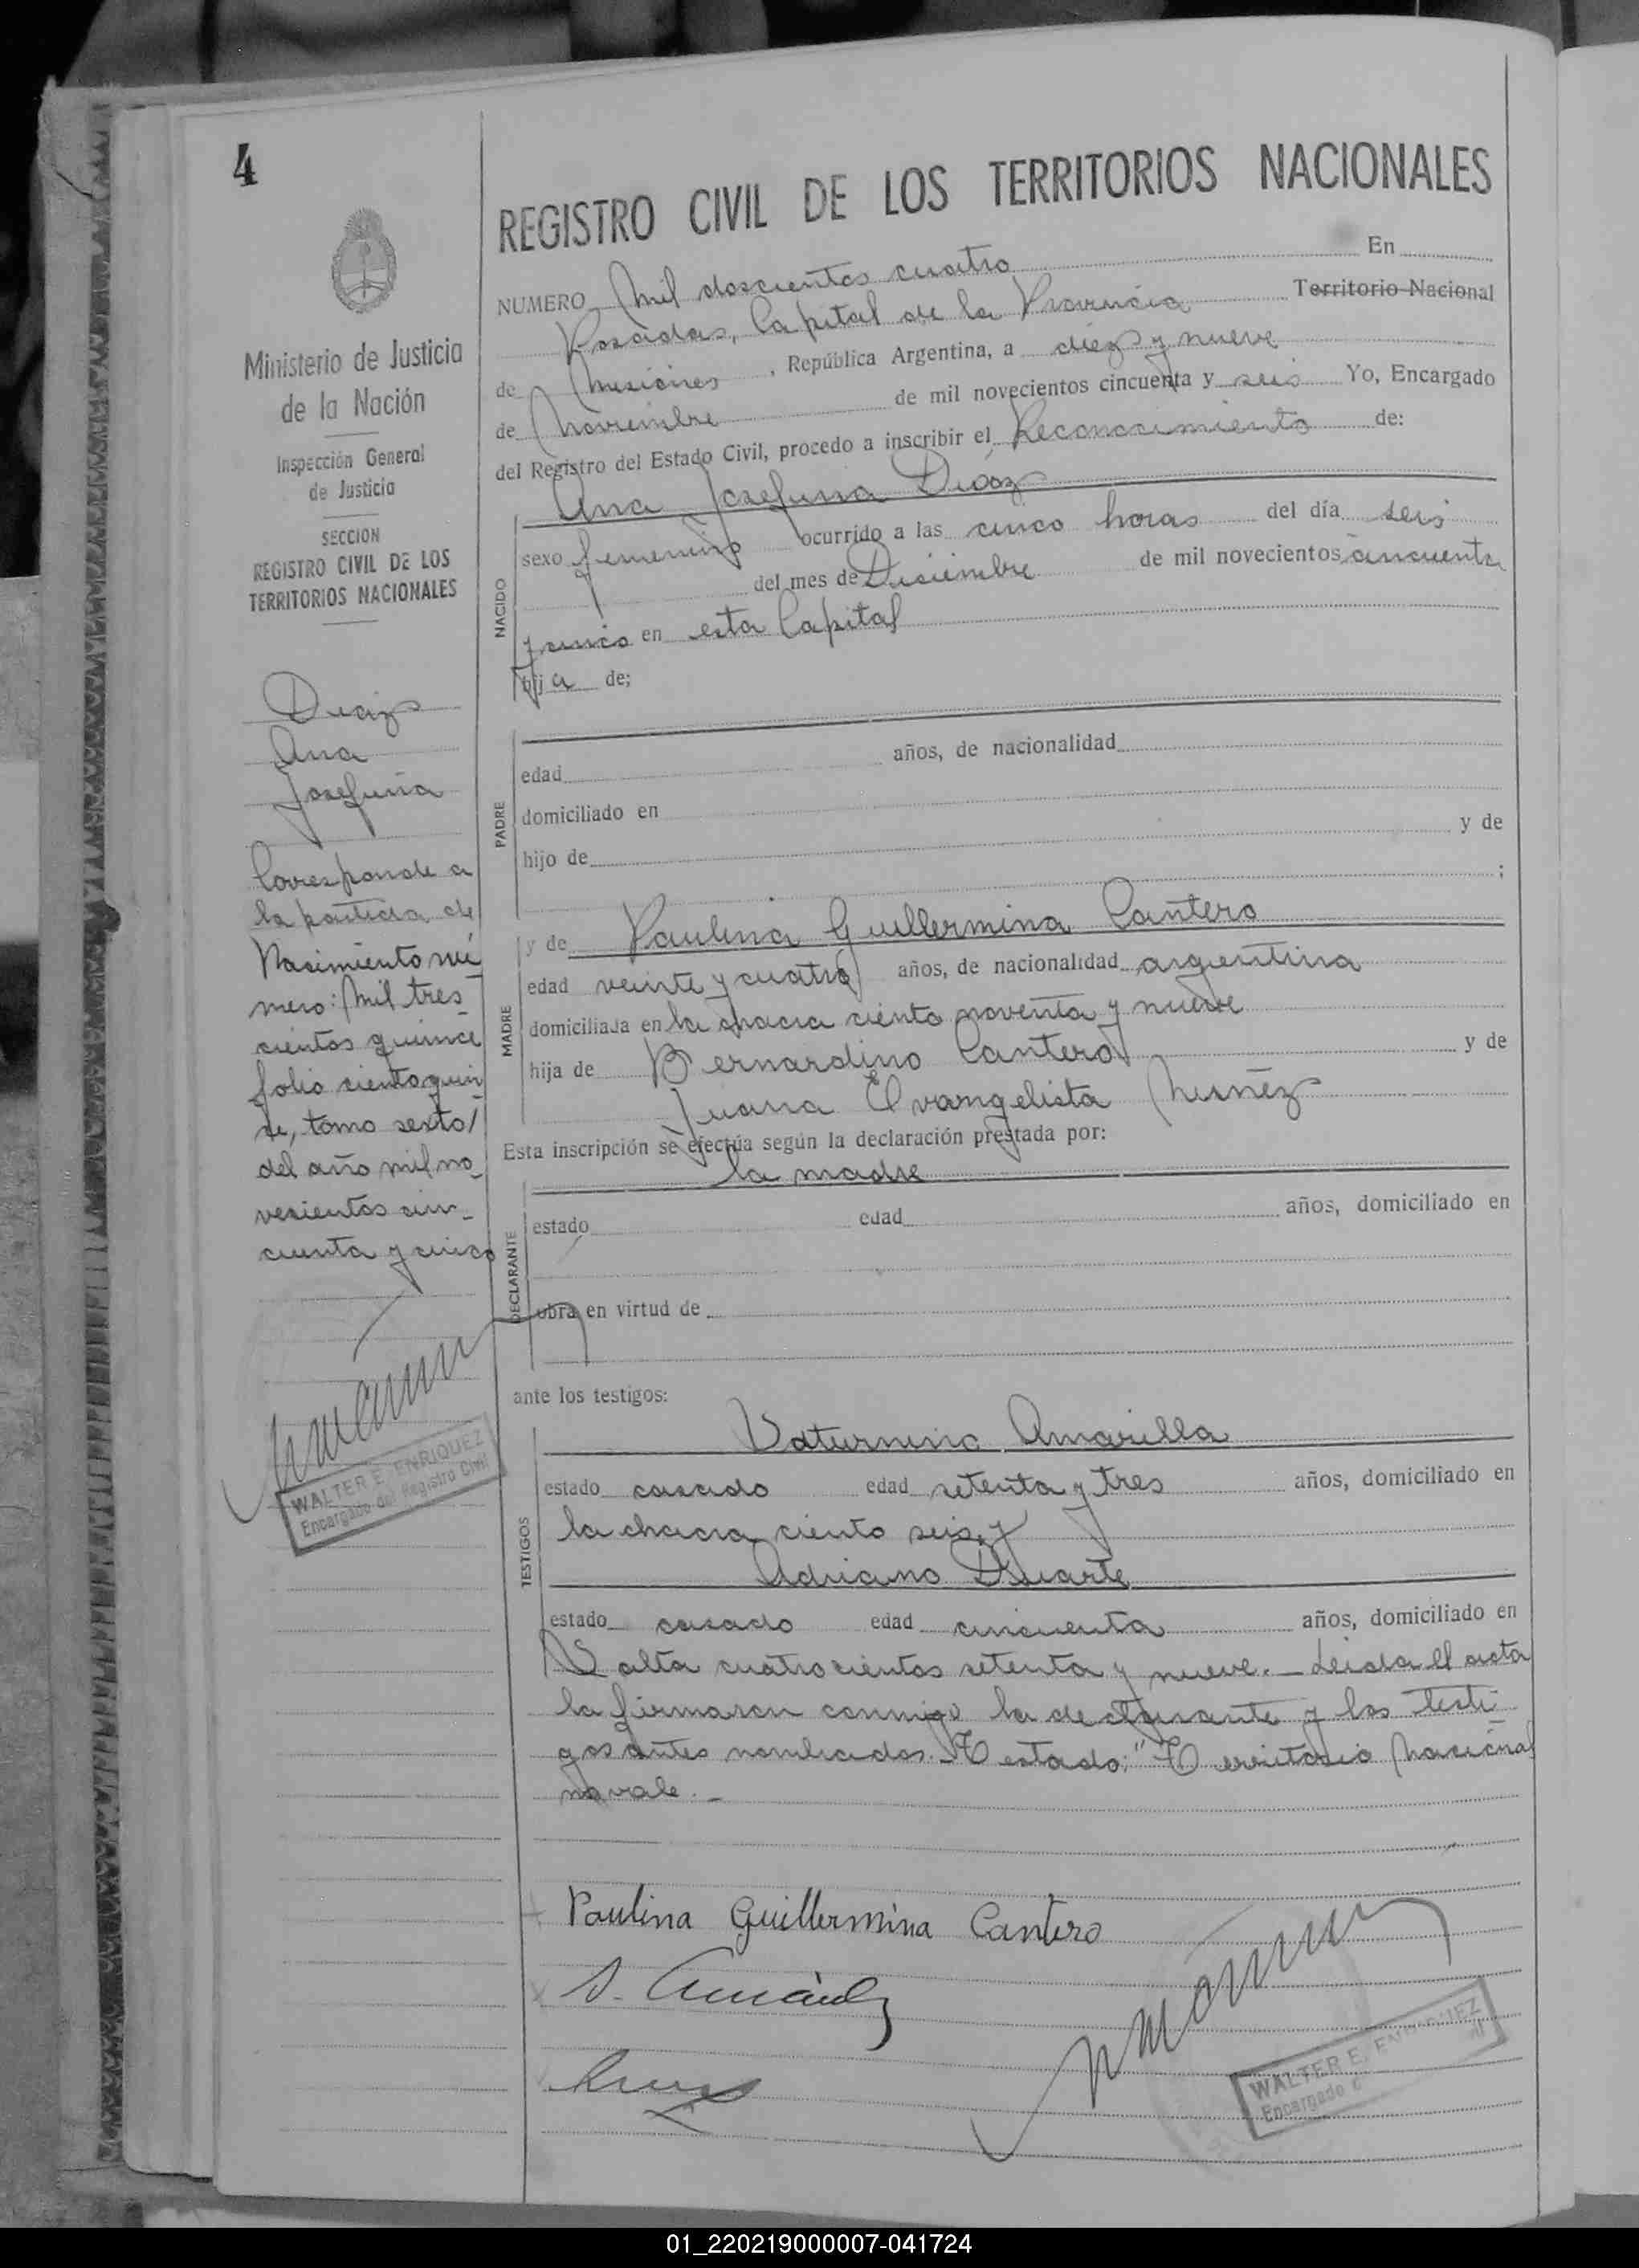 4
REGISTRO CIVIL DE LOS TERRITORIOS NACIONALES
Ministerio de Justicia
de la Nación
Inspección General
de Justicia
SECCION
REGISTRO CIVIL DE LOS
TERRITORIOS NACIONALES
Diaz
Ana
Josefina
Corresponde a
la partida de
Nacimiento nú
mero: Mil tres-
cientos quince
folio ciento quin
ce, tomo sexto/
del año mil no-
vecientos cin-
cuenta y cinco
WALTER E. ENRIQUEZ
Encargado del Registro Civil
NUMERO Mil doscientos cuatro En
Posadas, Capital de la Provincia Territorio Nacional
de Misiones, República Argentina, a diez y nueve
de Noviembre de mil novecientos cincuenta y seis Yo, Encargado
del Registro del Estado Civil, procedo a inscribir el Reconocimiento de:
Ana Josefina Diaz
NACIDO
sexo femenino ocurrido a las cinco horas del día seis
del mes de Diciembre de mil novecientos cincuenta
y cinco en esta Capital
hija de;
PADRE
edad años, de nacionalidad
domiciliado en
hijo de y de
;
MADRE
y de Paulina Guillermina Cantero
edad veinte y cuatro años, de nacionalidad argentina
domiciliada en la chacra ciento noventa y nueve
hija de Bernardino Cantero y de
Juana Evangelista Nuñez
Esta inscripción se efectúa según la declaración prestada por:
la madre
DECLARANTE
estado edad años, domiciliado en
obra en virtud de
ante los testigos:
TESTIGOS
Saturnino Amarilla
estado casado edad setenta y tres años, domiciliado en
la chacra ciento seis, y
Adriano Duarte
estado casado edad cincuenta años, domiciliado en
Salta cuatrocientos setenta y nueve.- Leida el acta
la firmaron conmigo la declarante y los testi-
gos antes nombrados. Testado: "Territorio Nacional
no vale.-
Paulina Guillermina Cantero
WALTER E. ENRIQUEZ
Encargado
01_220219000007-041724